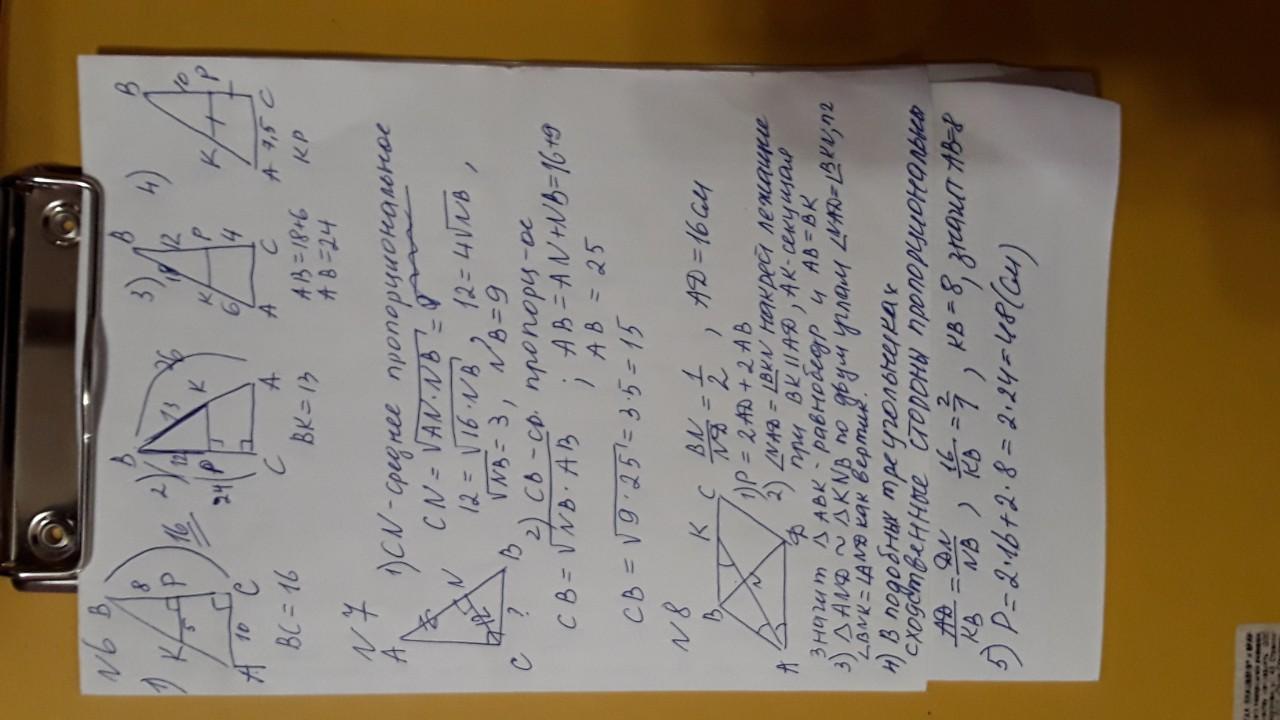 N6
1) B 8 K 5 P A 10 C 16
BC = 16
2) B 12 13 26 P K 24 C A
BK = 13
3) B 18 12 K P 6 4 A C
AB = 18+6
AB = 24
4) B 10 K P A 7,5 C
KP
N7
A N C ? B
1) CN - среднее пропорциональное
CN = √AN·NB =
12 = √16·NB, 12 = 4√NB,
√NB = 3, NB = 9
2) CB - ср. пропорц-ое
CB = √NB·AB ; AB = AN+NB = 16+9
AB = 25
CB = √9·25 = 3·5 = 15
N8
B K C A N D
BN/ND = 1/2, AD = 16 см
1) P = 2AD + 2AB
2) ∠NAD = ∠BKN накрест лежащие
при BK || AD, AK - секущая
значит △ABK - равнобедр и AB = BK
3) △AND ~ △KNB по двум углам ∠NAD = ∠BKN, п2
∠BNK = ∠AND как вертик.
4) В подобных треугольниках
сходственные стороны пропорциональны
AD/KB = DN/NB, 16/KB = 2/1, KB = 8, значит AB = 8
5) P = 2·16 + 2·8 = 2·24 = 48 (см)